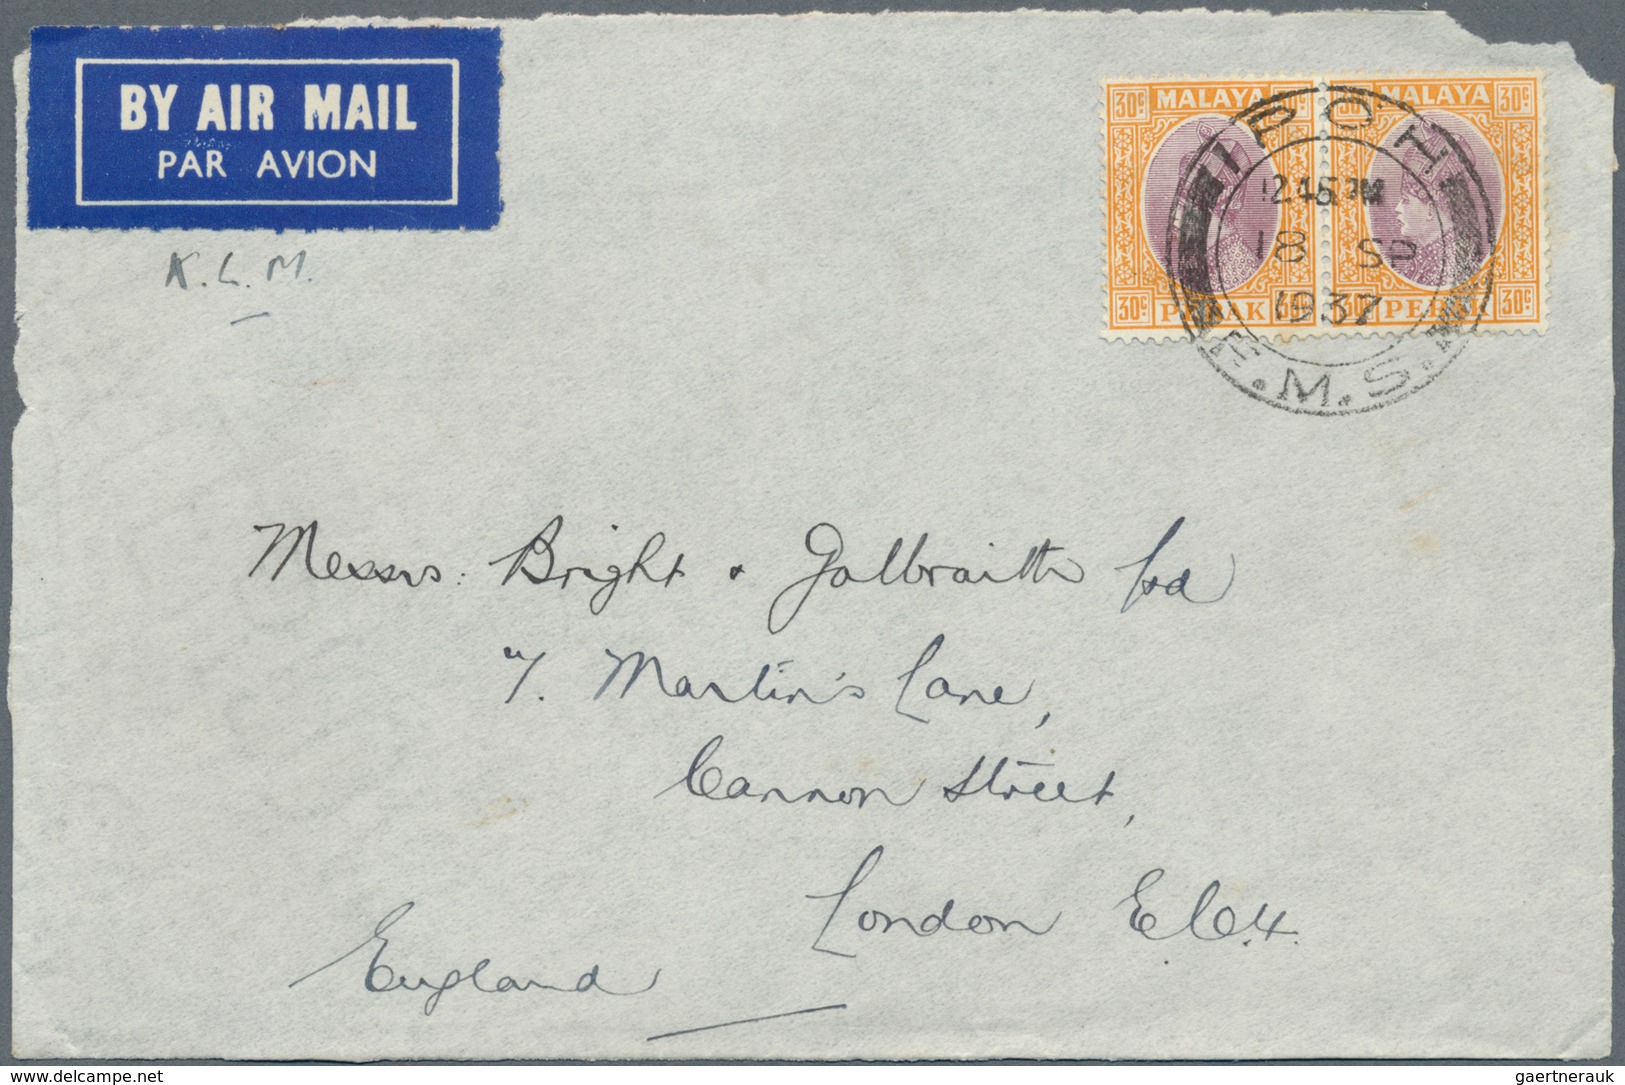 BY AIR MAIL
PAR AVION
K.L.M.
30c MALAYA 30c
30c PERAK 30c
30c MALAYA 30c
30c PERAK 30c
IPOH
12.45 PM
18 SP
1937
F.M.S.
Messrs. Bright & Galbraith Ltd
7. Martin's Lane,
Cannon Street,
London E.C.4.
England
delcampe.net
gaertnerauk